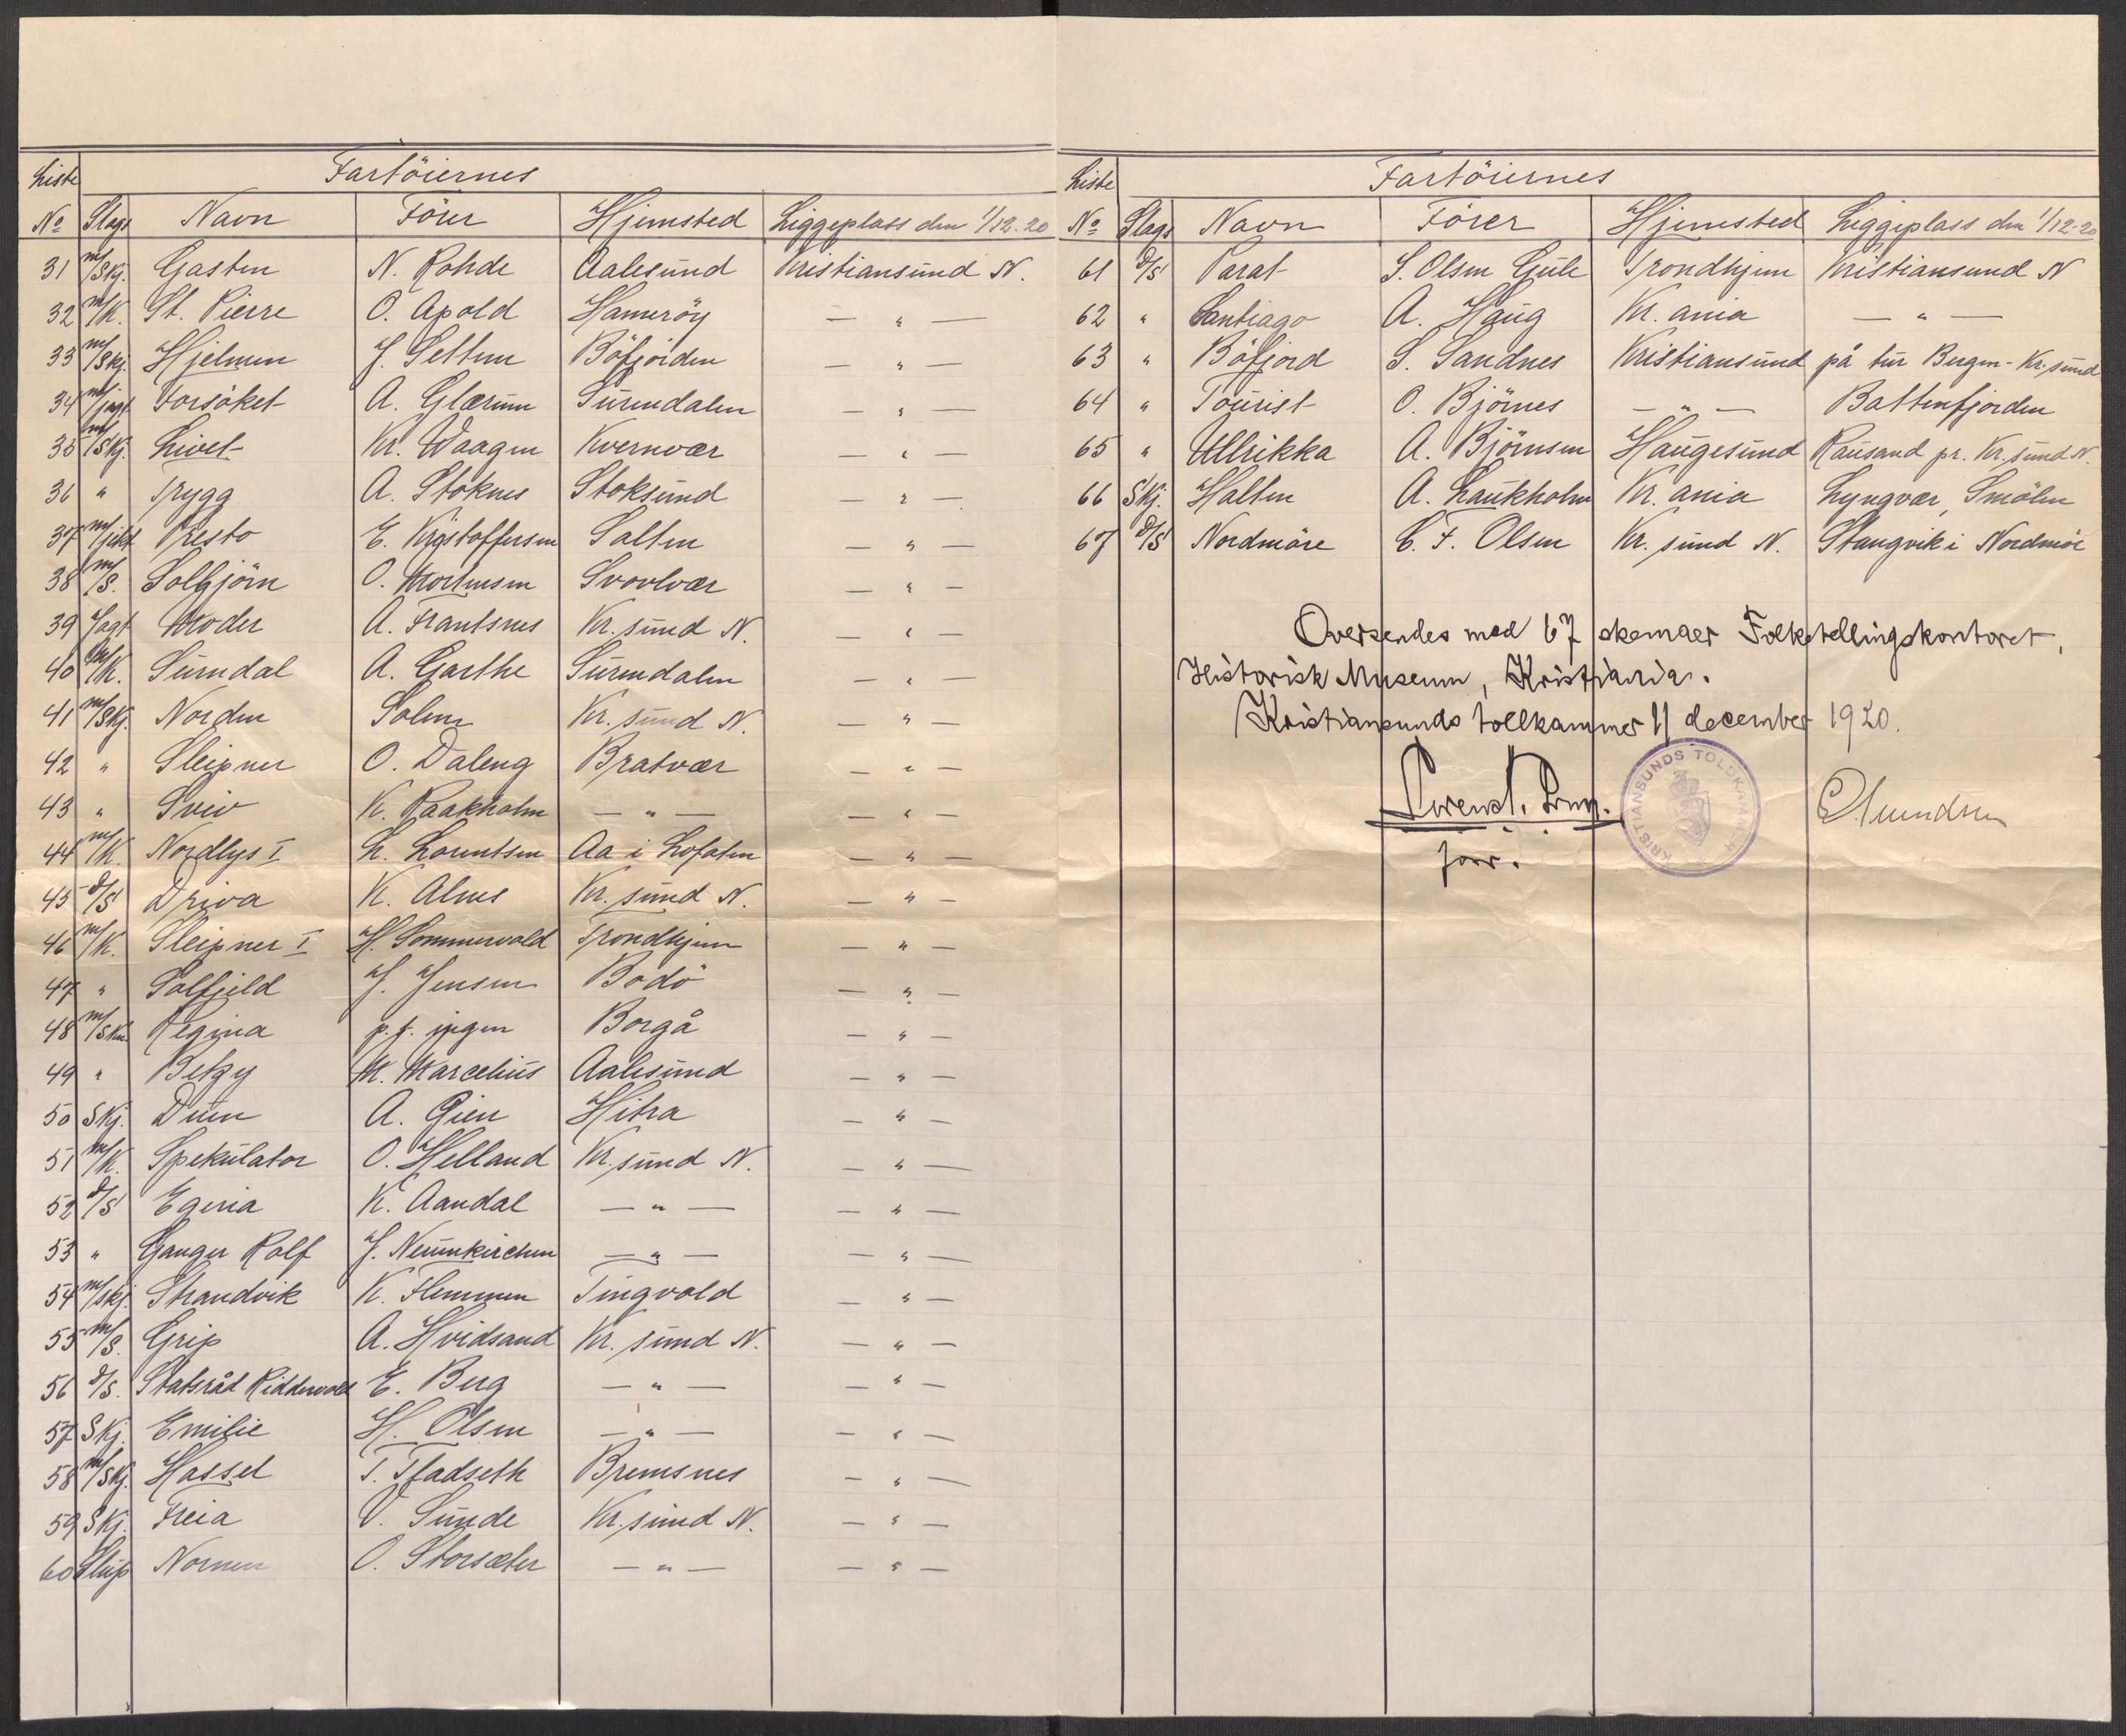 Liste Fartöiernes
No Slags Navn Förer Hjemsted Liggeplass den 1/12-20
31 m/Skj. Gasten N. Rohde Aalesund Kristiansund N.
32 m/K. St. Pierre O. Apold Hameröy — " —
33 m/Skj. Hjelmen J. Settem Böfjorden — " —
34 m/jagt Forsöket A. Glærum Surendalen — " —
35 m/Skj. Livet Kr. Waagen Kvernvær — " —
36 " Trygg A. Stoknes Stoksund — " —
37 m/jekt Presto E. Kristoffersen Salten — " —
38 m/S. Solbjörn O. Mortensen Svovlvær — " —
39 Jagt Moder A. Frantsnes Kr. sund N. — " —
40 m/K. Surndal A. Garthe Surendalen — " —
41 m/Skj. Norden Solem Kr. sund N. — " —
42 " Sleipner O. Daleng Bratvær — " —
43 " Sviv K. Raakholm — " — — " —
44 m/K. Nordlys I L. Lorentsen Aa i Lofoten — " —
45 d/S Driva K. Alnes Kr. sund N. — " —
46 m/K. Sleipner I H. Sommervold Trondhjem — " —
47 " Solfjeld J. Jensen Bodö — " —
48 m/Skn. Regina p.t. ingen Borgå — " —
49 " Betzy M. Marcelius Aalesund — " —
50 Skj. Duen A. Gien Hitra — " —
51 m/K. Spekulator O. Helland Kr. sund N. — " —
52 d/S Egeria K. Aandal — " — — " —
53 " Ganger Rolf J. Neumkirchen — " — — " —
54 m/skj. Strandvik K. Flemmen Tingvold — " —
55 m/S. Grip A. Hvidsand Kr. sund N. — " —
56 d/S. Statsråd Riddervold E. Berg — " — — " —
57 Skj. Emilie H. Olsen — " — — " —
58 m/Skj. Hassel T. Fladseth Bremsnes — " —
59 Skj. Freia V. Sunde Kr. sund N. — " —
60 Slup Nornen O. Storsæter — " — — " —
Liste Fartöiernes
No Slags Navn Förer Hjemsted Liggeplass den 1/12-20
61 d/S Parat S. Olsen Gule Trondhjem Kristiansund N
62 " Santiago A. Haug Kr. ania — " —
63 " Böfjord S. Sandnes Kristiansund på tur Bergen - Kr. sund
64 " Tourist O. Björnes — " — Battenfjorden
65 " Ullrikka A. Björnsen Haugesund Rausand pr. Kr. sund N.
66 Skj. Halten A. Laukholm Kr. ania Lyngvær, Smölen
67 d/S Nordmöre C. F. Olsen Kr. sund N. Stangvik i Nordmör
Oversendes med 67 skemaer Folketellingskontoret,
Historisk Museum, Kristiania.
Kristiansunds tollkammer 11 december 1920.
KRISTIANSUNDS TOLDKAMMER